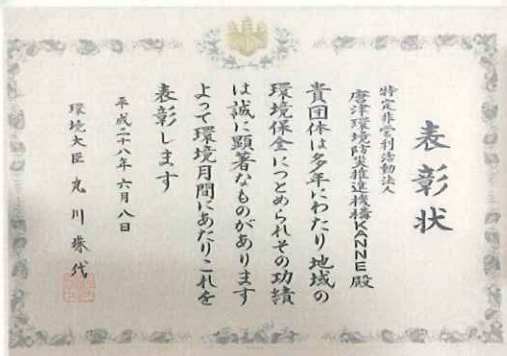 表彰状
特定非営利活動法人
唐津環境防災推進機構KANNE殿
貴団体は多年にわたり地域の
環境保全につとめられその功績
は誠に顕著なものがあります
よって環境月間にあたりこれを
表彰します
平成二十八年六月八日
環境大臣 丸川珠代